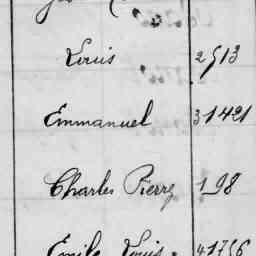 Louis 2513
Emmanuel 31421
Charles Pierre 198
Emile Louis. 41756